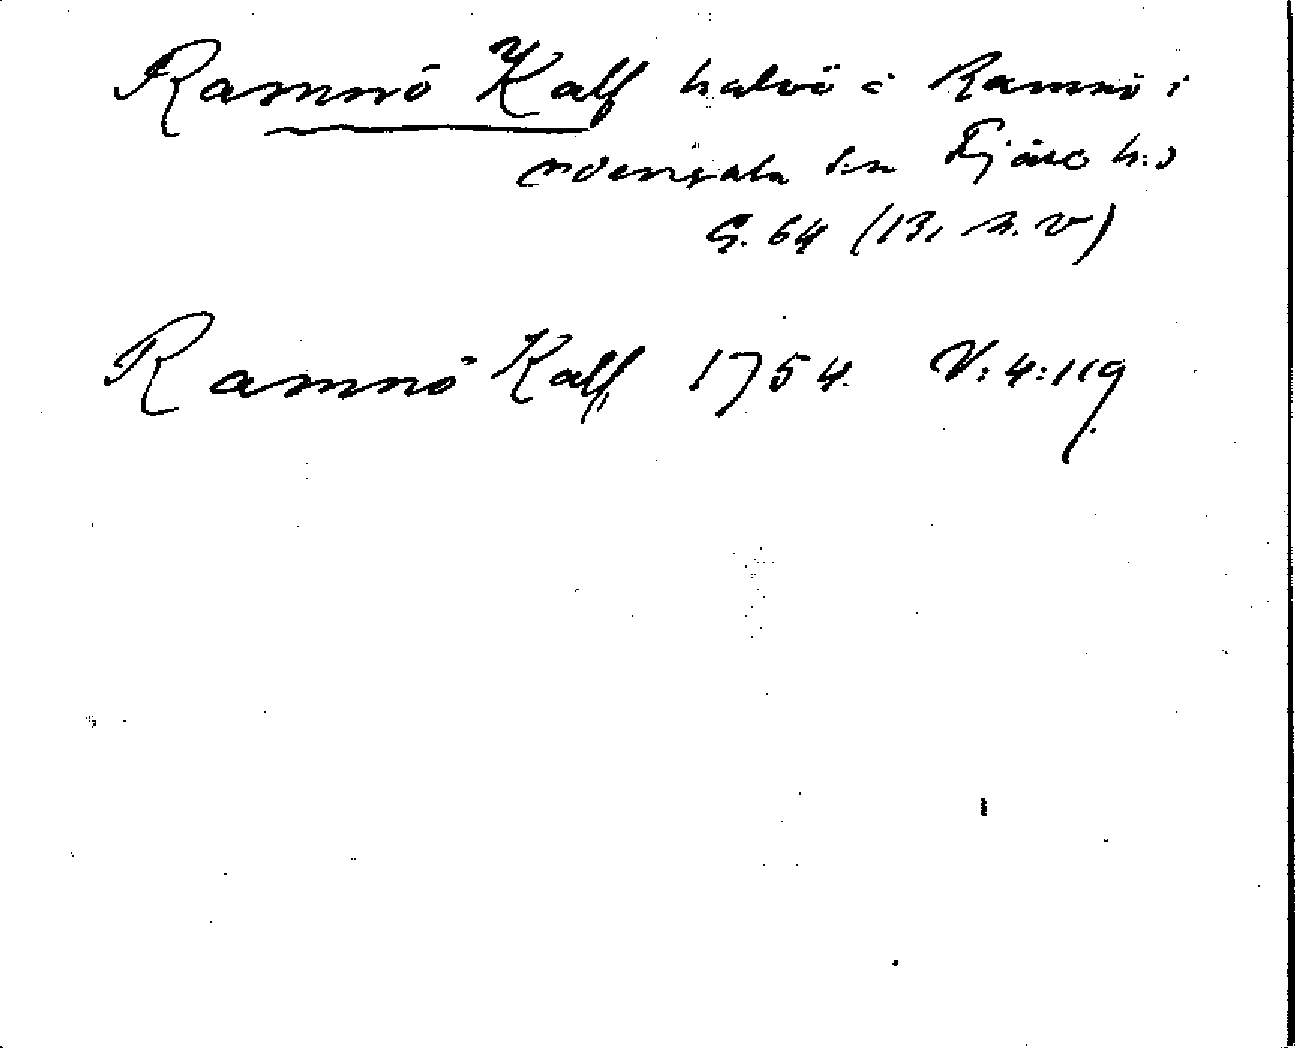 Ramnö Kalf halvö i Ramnö i
Onsala sn Fjäre h:d
G. 64 (13, n. v)
Ramnö Kalf 1754. V:4:119